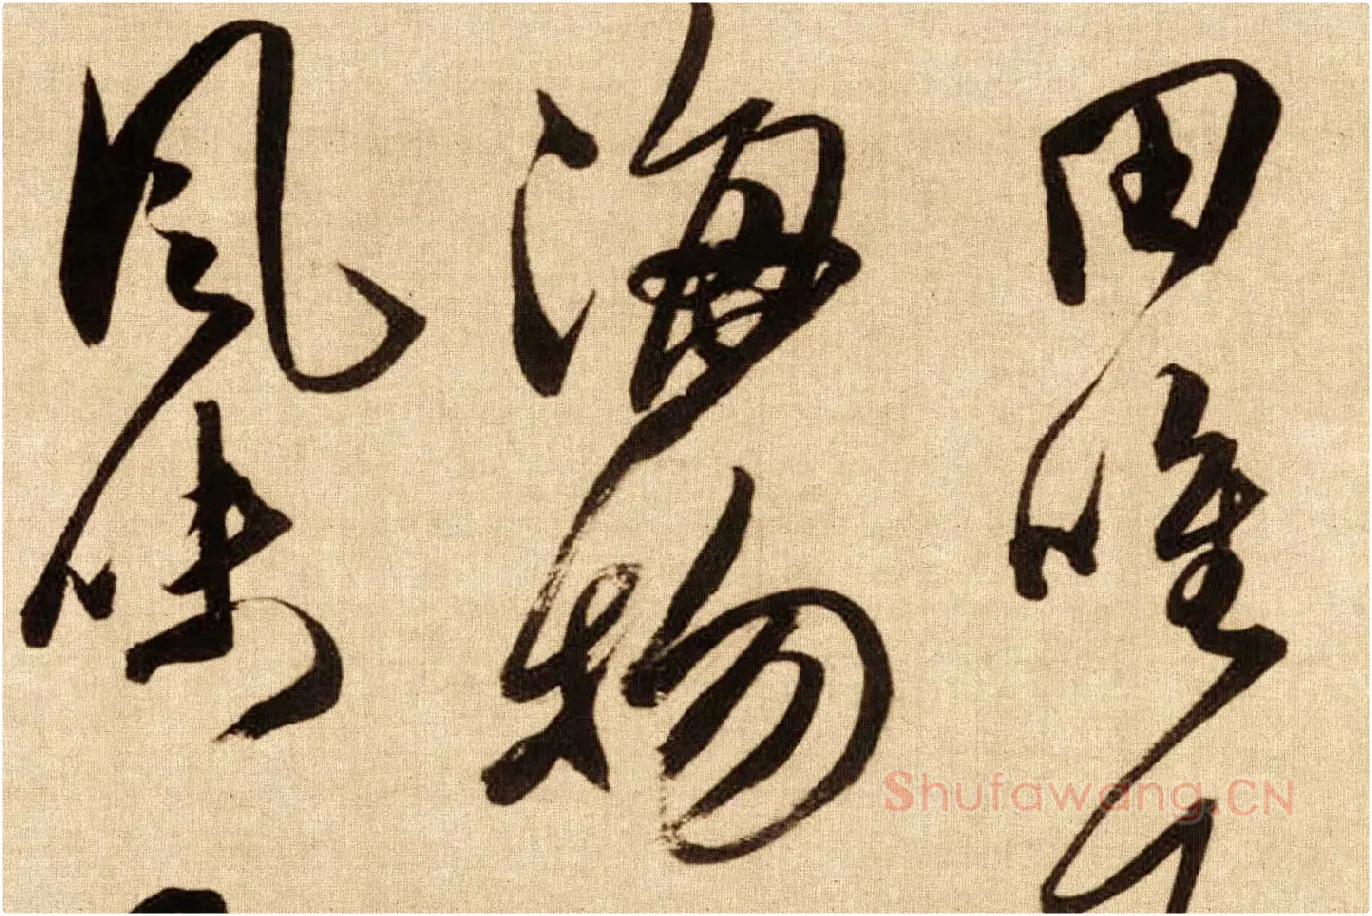 田唯
海物
風
Shufawang.CN